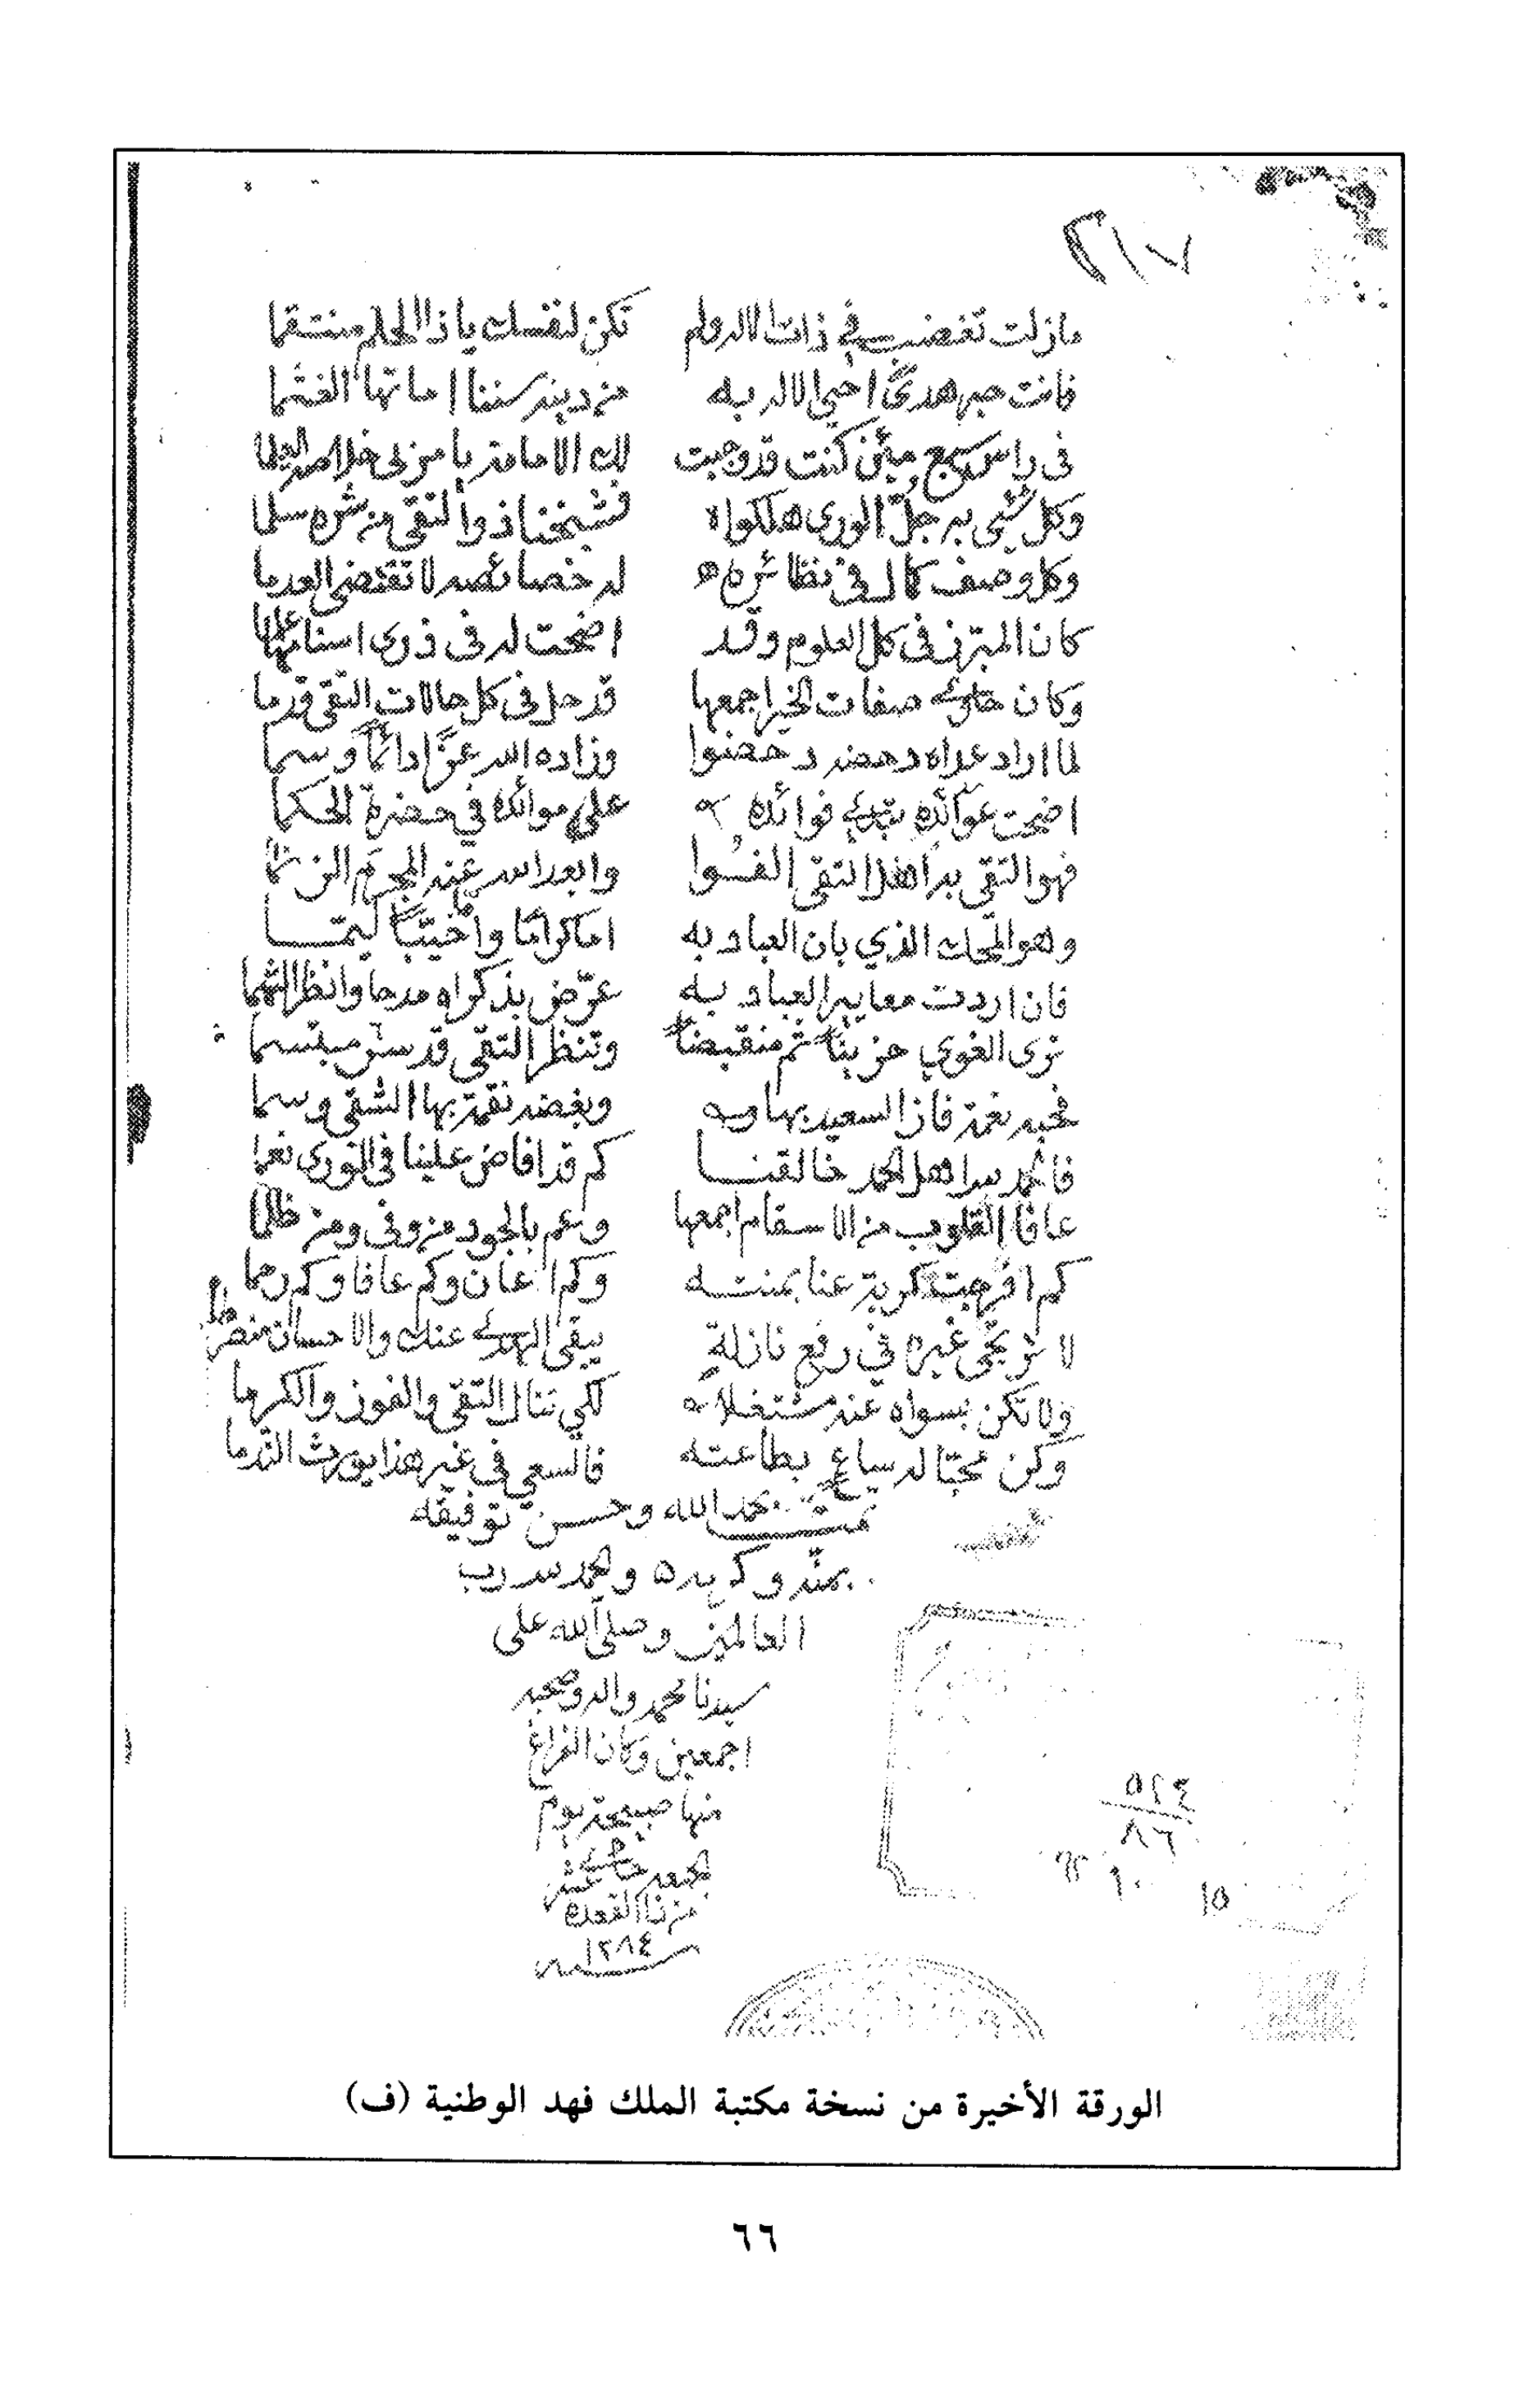 ٢١٧
مازلت تغضب في ذات الاله ولم تكن لنفسك يا ذا الحلم منتقما
فانت حبر هدى احيى الاله به من دينه سننا اماتها الغشما
في راس سبع مئين كنت قد وجبت لك الامامة يا من في خلاصه
وكل شيء به جل الورى هلكوا فشيخنا ذو التقى من شره سلما
وكل وصف كمال في نظائره له خصائصه لا تقتضي العدما
كان المبرز في كل العلوم وقد اضحت له في ذرى اسنائها علما
وكان حاوي صفات الخير اجمعها قد حل في كل حالات التقى قدما
لما اراد عداه دحضه دحضوا وزاده الله عزا دائما وسما
اضحت عوائده تبدي فوائده على موائده في حضرة الحكما
فهو التقي به اهل التقى الفوا وابعد الله عنه المجرم
وهو المحك الذي بان العباد به اما كراما واما خيبا ليما
فان اردت معايير العباد به عرض بذكراه مدحا وانظر الشيما
ترى الغوي حزينا ثم منقبضا وتنظر التقي قد سر مبتسما
فحبه نعمة فاز السعيد بها وبه وبغضه نقمة بها الشقي وسما
فالحمد لله اهل الحمد خالقنا كم قد افاض علينا في الورى نعما
عافا القلوب من الاسقام اجمعها وعم بالجود من وفى ومن ظلما
كم افرجت كربة عنا بمنته وكم اعان وكم عافا وكم رحما
لا ترتجي غيره في رفع نازلة يبقى الهدى عنك والاحسان
ولا تكن بسواه عنه مشتغلا لكي تنال التقى والفوز والكرما
وكن محبا له ساع بطاعته فالسعي في غير هذا يورث الندما
تمت بحمد الله وحسن توفيقه
بمنه وكرمه والحمد لله رب
العالمين وصلى الله على
سيدنا محمد واله وصحبه
اجمعين وكان الفراغ
منها صبيحة يوم
الجمعة
من ذا القعدة
١٢٨٤
٥٢٤
٨٦
١٠
١٥
الورقة الأخيرة من نسخة مكتبة الملك فهد الوطنية (ف)
٦٦